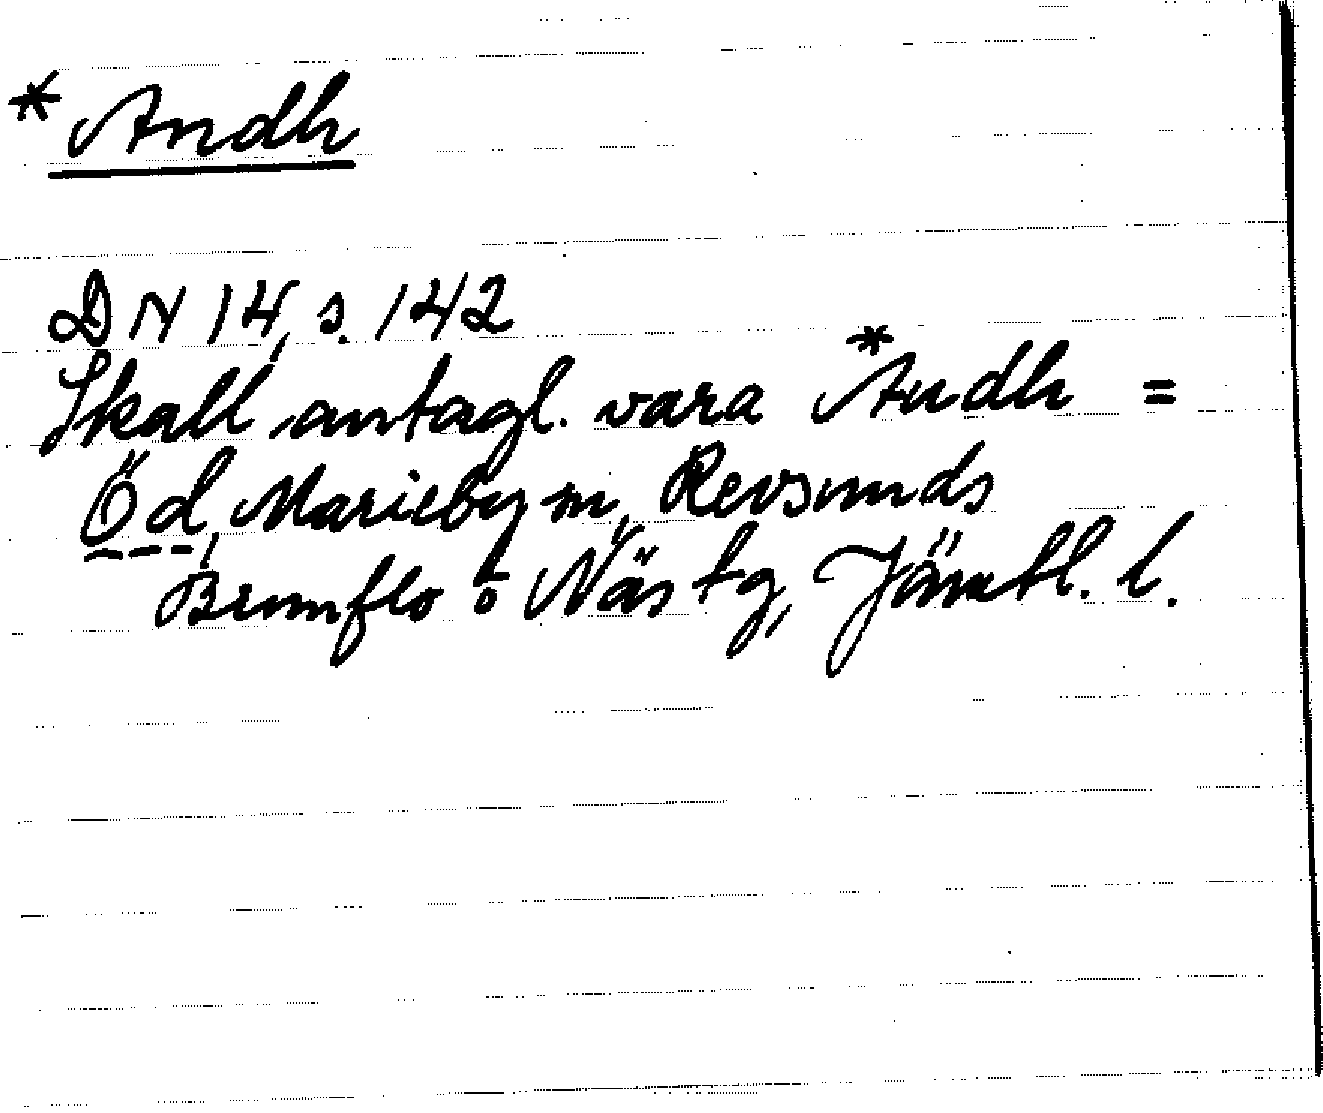 * Andh
DN 14, s. 142
Skall antagl. vara *Audh =
Öd, Marieby sn, Revsunds
Brunflo o Näs tg, Jämtl. l.